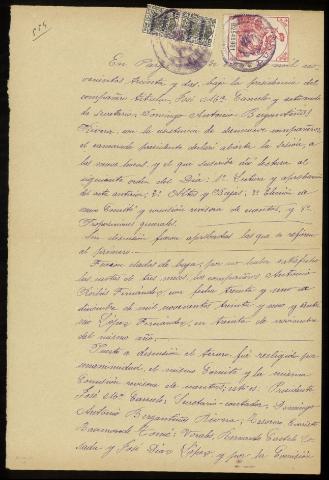 En
mil no-
vecientos treinta y dos, bajo la presidencia del
compañero José Mª Carcelo y actuando
de secretario, Domingo Antonio Bergantiños
Rivera, con la asistencia de diecinueve compañeros,
el camarada presidente declaró abierta la sesión, a
las nueve horas, y el que suscribe dió lectura al
siguiente orden del Dia: 1º Lectura y aprobación
del acta anterior; 2º Altas y Bajas; 3º Elección de
nuevo Comité y comisión revisora de cuentas, y 4º
Proposiciones generales.
Sin discusión fueron aprobadas las que se refieren
al primero.
Fueron dados de baja, por no haber satisfecho
las cuotas de tres meses, los compañeros Antonio
Fernández, con fecha treinta y uno de
diciembre de mil novecientos treinta y uno y
López Fernández, en treinta de noviembre
del mismo año.
Puesto a discusión el tercero fué reelegido por
unanimidad, el mismo Comité y la misma
Comisión revisora de cuentas; estos: Presidente
José Mª Carcelo; Secretario-contador, Domingo
Antonio Bergantiños Rivera; Tesorero,
Vocales, Fernando
y José Díaz López y por la Comisión